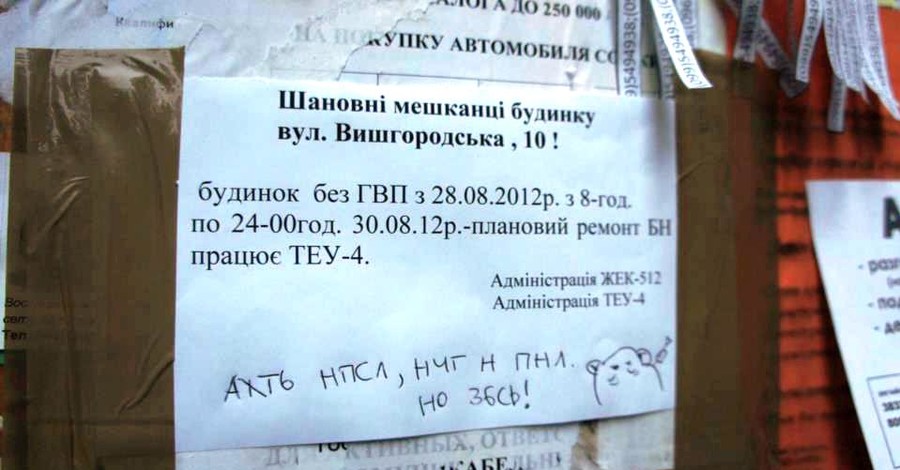 Квалифи
ЛОГА ДО 250 000
НА ПОКУПКУ АВТОМОБИЛЯ СО
Шановні мешканці будинку
вул. Вишгородська , 10 !
будинок без ГВП з 28.08.2012р. з 8-год.
по 24-00год. 30.08.12р.-плановий ремонт БН
працює ТЕУ-4.
Адміністрація ЖЕК-512
Адміністрація ТЕУ-4
АХТЬ НПСЛ, НЧГ Н ПНЛ.
НО ЗБСЬ!